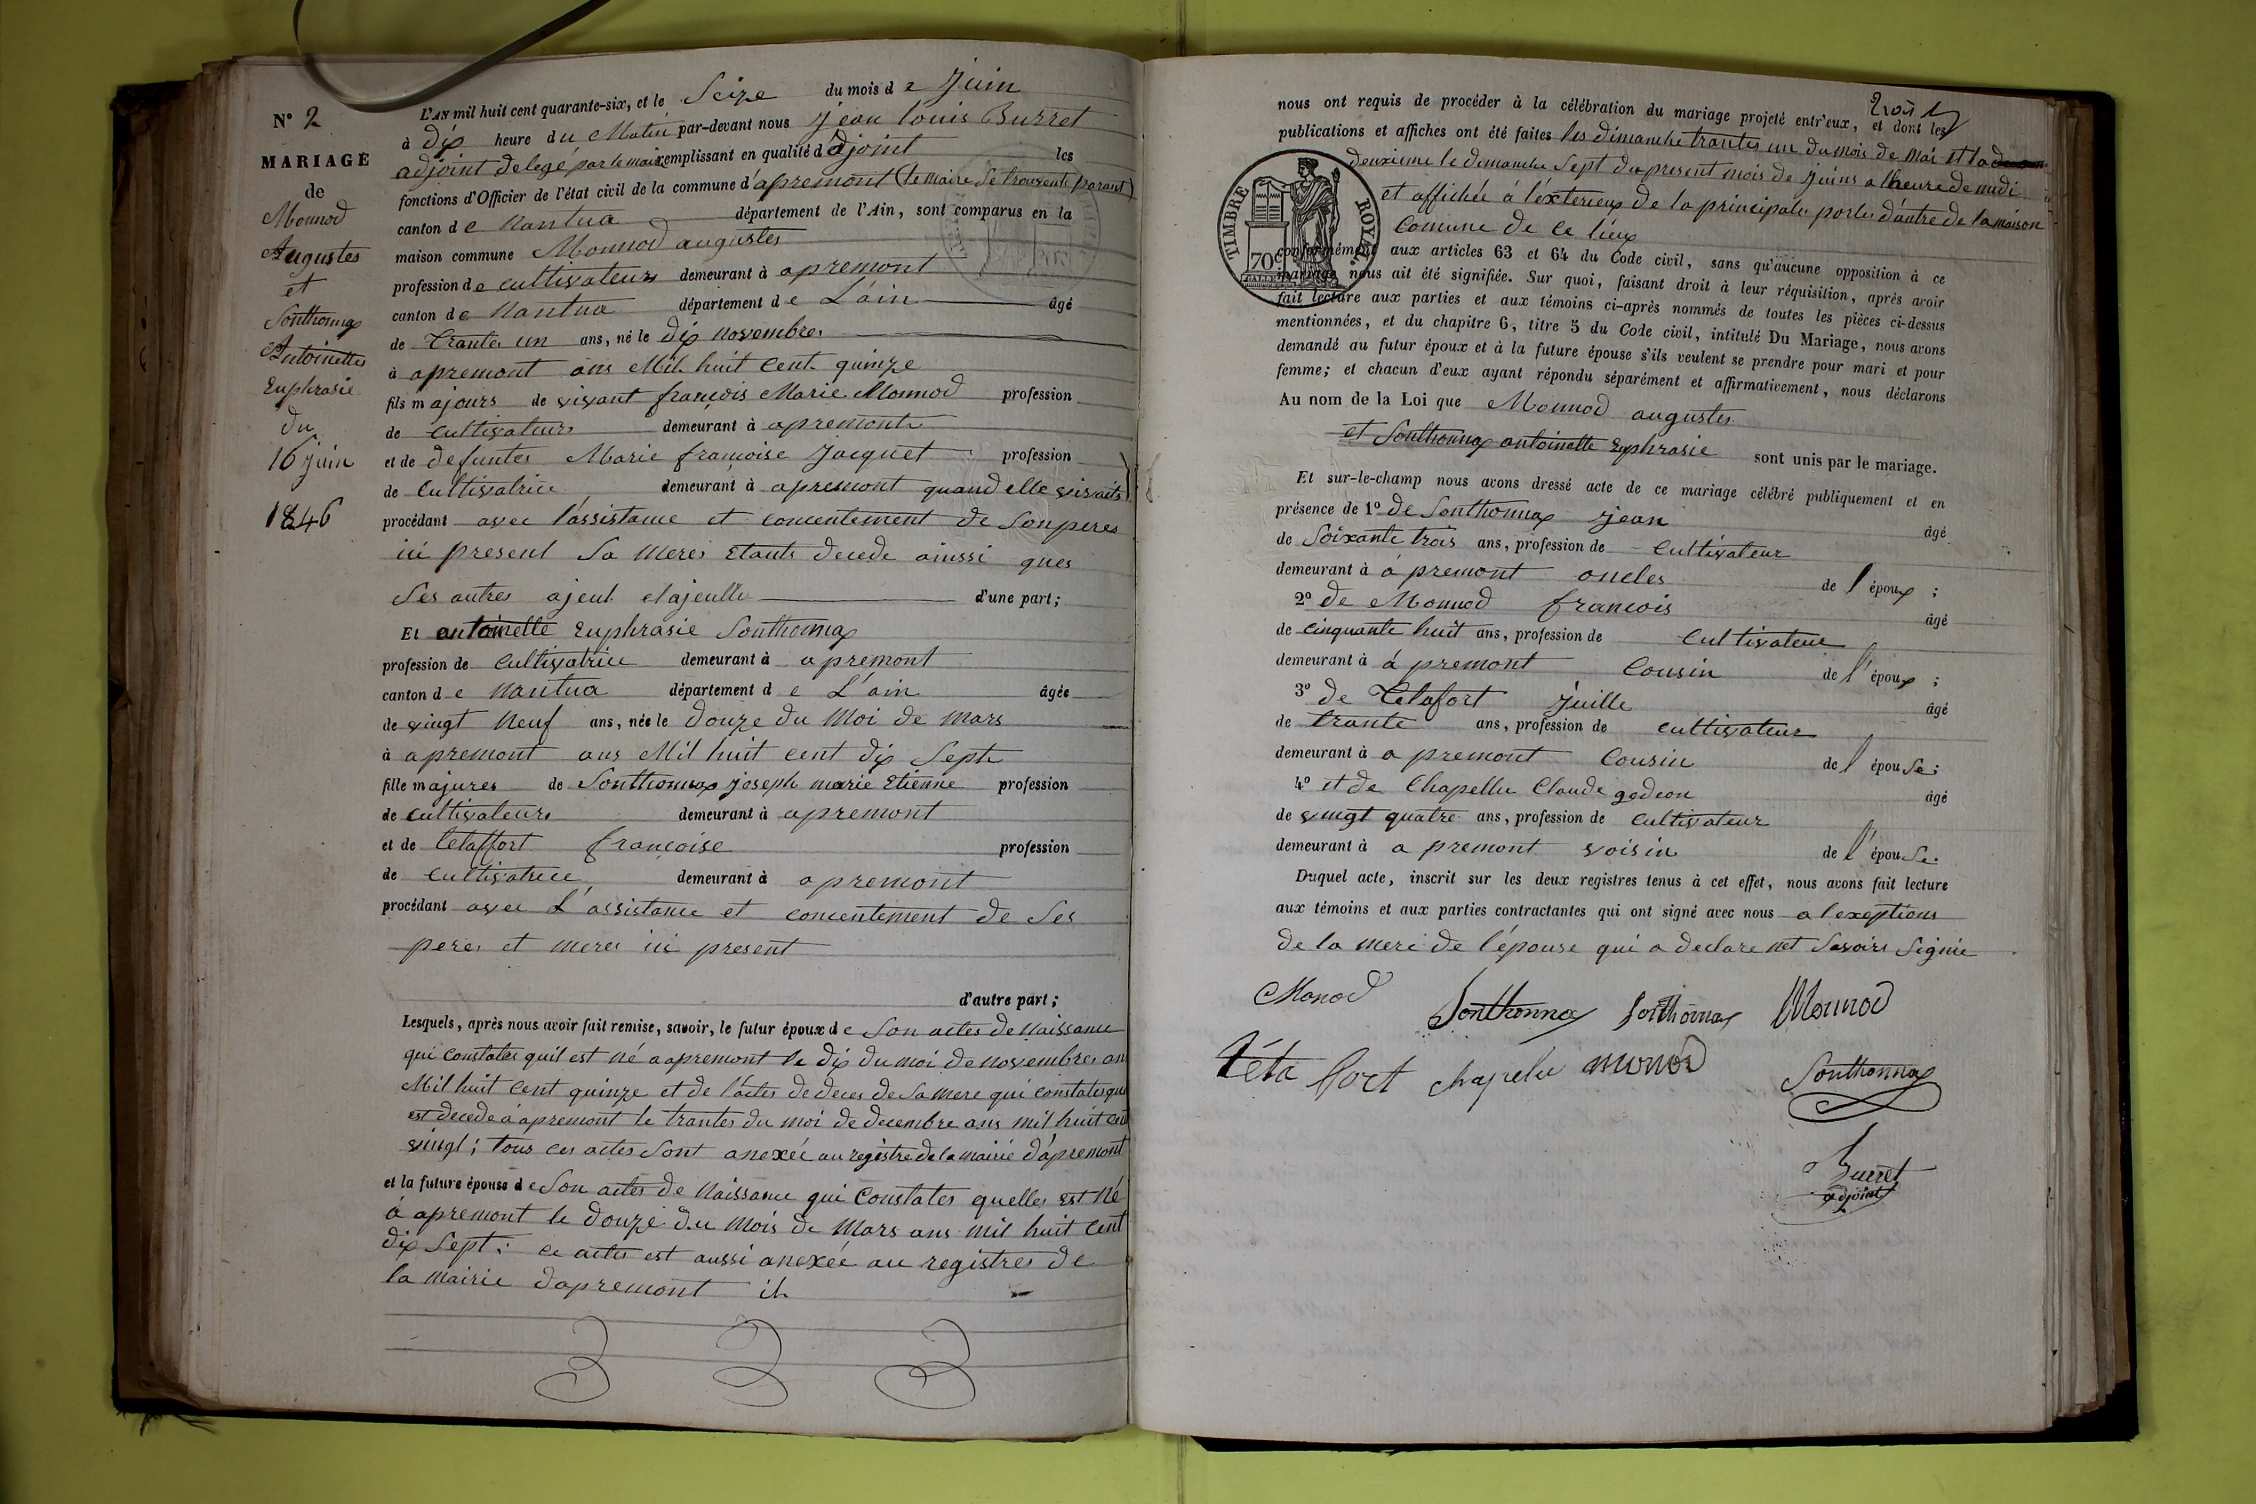 N° 2
MARIAGE
de
Monnod
Augustes
et
Sonthonnax
Antoinettes
Euphrasie
du
16 juin
1846
L'AN mil huit cent quarante-six, et le Seize du mois de Juin
à dix heure du Matin par-devant nous jean louis Burret
adjoint delegé par le maire remplissant en qualité d'adjoint les
fonctions d'Officier de l'état civil de la commune d'apremont (le maire se trouvents parant)
canton de Nantua département de l'Ain, sont comparus en la
maison commune Monnod augustes
profession de cultivateurs demeurant à apremont
canton de Nantua département de L'ain âgé
de Trantes un ans, né le dix novembres
à apremont ans Mil huit cent quinze
fils majours de vivant françois Marie Monnod profession
de cultivateurs demeurant à apremonts
et de defuntes Marie françoise Jacquet profession
de Cultivatrice demeurant à apremont quand elle vivaits
procédant avec l'assistance et concentement de son peres
ici present Sa meres Etants decede ainssi ques
Ses autres ajeul etajeulle d'une part;
Et antoinette Euphrasie Sonthonnax
profession de cultivatrice demeurant à apremont
canton de Nantua département de L'ain âgée
de vingt Neuf ans, née le douze du Moi de Mars
à apremont ans Mil huit cent dix Septs
fille majures de Sonthonnax joseph marie Etienne profession
de cultivateurs demeurant à apremont
et de tétaffort françoise profession
de cultivatrice demeurant à apremont
procédant avec L'assistance et concentement de Ses
peres et meres ici present
d'autre part;
Lesquels, après nous avoir fait remise, savoir, le futur époux de Son actes de Naissance
qui constates quil est né a apremont le dix du moi de novembres an
Mil huit cent quinze et de l'actes de deces de Sa mere qui constates que
est decede a apremont le trantes du moi de decembre ans mil huit cent
vingt; tous ces actes sont anexéé au registre de la mairié d'apremont
et la future épouse de Son actes de Naissance qui Constates quelles est Né
à apremont le douze du Mois de Mars ans mil huit cent
dix Sept: ce actes est aussi anexéé au registres de
la mairie dapremont ils
nous ont requis de procéder à la célébration du mariage projeté entr'eux, et dont les
publications et affiches ont été faites les dimanche trantes un du mois de mai et la
deuxieme le dimanche Sept du present mois de juins a lheure de midi
et affichée à l'exterieux de la principales portes d'autre de la maison
Comune de ce lieux
conformément aux articles 63 et 64 du Code civil, sans qu'aucune opposition à ce
mariage nous ait été signifiée. Sur quoi, faisant droit à leur réquisition, après avoir
fait lecture aux parties et aux témoins ci-après nommés de toutes les pièces ci-dessus
mentionnées, et du chapitre 6, titre 5 du Code civil, intitulé Du Mariage, nous avons
demandé au futur époux et à la future épouse s'ils veulent se prendre pour mari et pour
femme; et chacun d'eux ayant répondu séparément et affirmativement, nous déclarons
Au nom de la Loi que Monnod augustes
et Sonthonnax antoinette Euphrasie sont unis par le mariage.
Et sur-le-champ nous avons dressé acte de ce mariage célébré publiquement et en
présence de 1° de Sonthonnax jean âgé
de Soixante trois ans, profession de Cultivateur
demeurant à apremont oncles de l'époux;
2° de Monnod francois âgé
de cinquante huit ans, profession de Cultivateur
demeurant à apremont Cousin de l'époux;
3° de Tetafort juille âgé
de trante ans, profession de cultivateur
demeurant à apremont Cousin de l'épouse;
4° et de Chapellu Claude gedeon âgé
de vingt quatre ans, profession de Cultivateur
demeurant à apremont voisin de l'épouse.
Duquel acte, inscrit sur les deux registres tenus à cet effet, nous avons fait lecture
aux témoins et aux parties contractantes qui ont signé avec nous a l'exeptions
de la mere de l'épouse qui a declare net Savoirs Signie
Monod Sonthonnax Sonthonnax Mounod
Téta fort chapelu monod Sonthonnax
Burret
adjoint
TIMBRE ROYAL
70